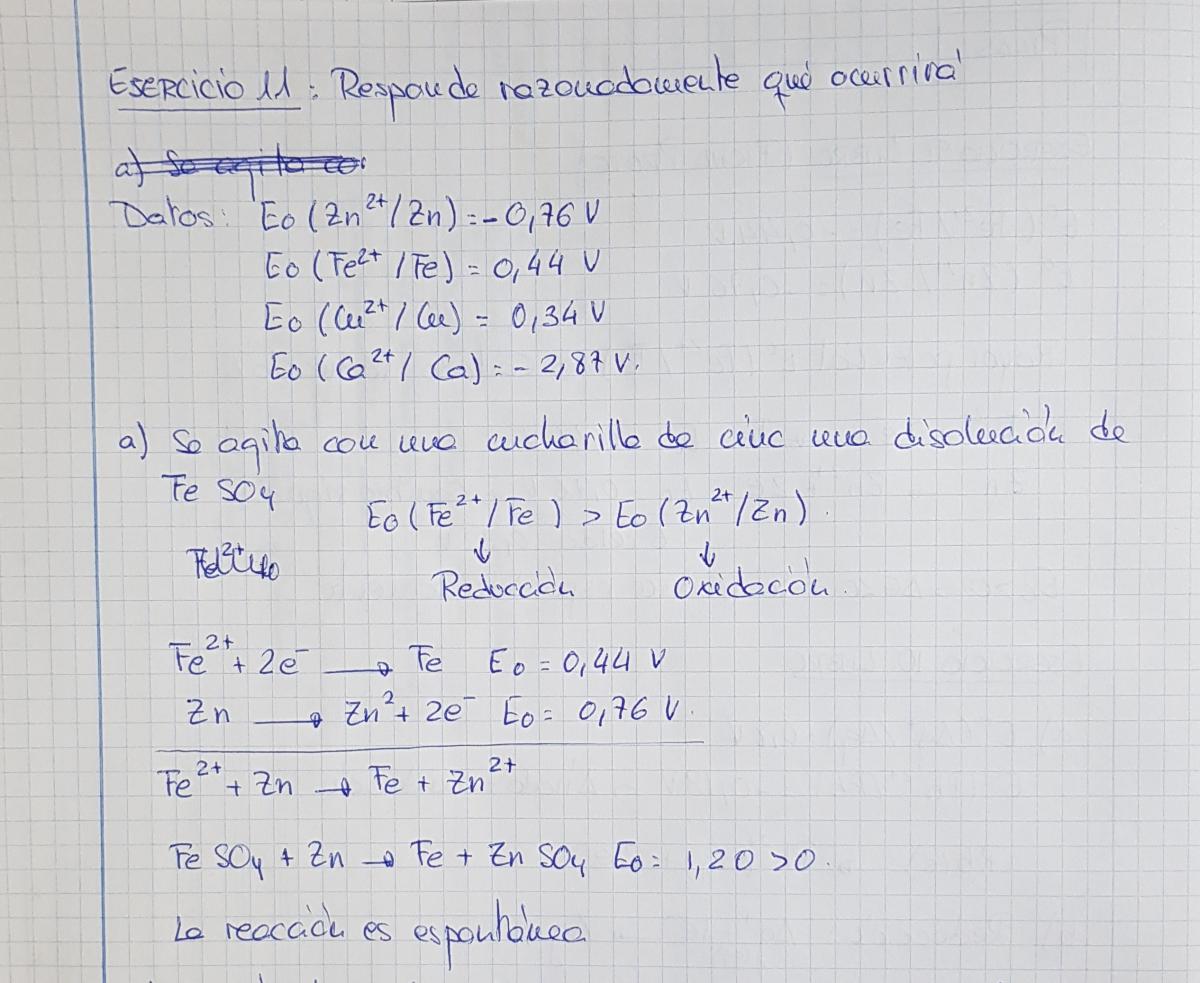 Esercicio 11: Responde razonadamente qué ocurrirá
a) Se agita co
Datos: Eo (Zn²⁺/Zn) = -0,76 V
Eo (Fe²⁺/Fe) = 0,44 V
Eo (Cu²⁺/Cu) = 0,34 V
Eo (Ca²⁺/Ca) = -2,87 V.
a) Se agita con una cucharilla de cinc una disolución de
FeSO₄
Eo (Fe²⁺/Fe) > Eo (Zn²⁺/Zn).
↓ ↓
Reducción Oxidación.
Fe²⁺ + 2e⁻ → Fe Eo = 0,44 V
Zn → Zn² + 2e⁻ Eo = 0,76 V.
Fe²⁺ + Zn → Fe + Zn²⁺
FeSO₄ + Zn → Fe + ZnSO₄ Eo = 1,20 > 0.
La reacción es espontánea